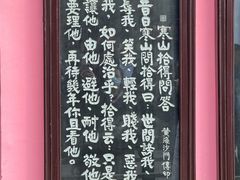 寒山拾得問答
昔日寒山問拾得曰：世間謗我、
辱我、笑我、輕我、賤我、惡我
我、如何處治乎？拾得云：只是
讓他、由他、避他、耐他、敬他
要理他，再待幾年你且看他。
沙門傳印